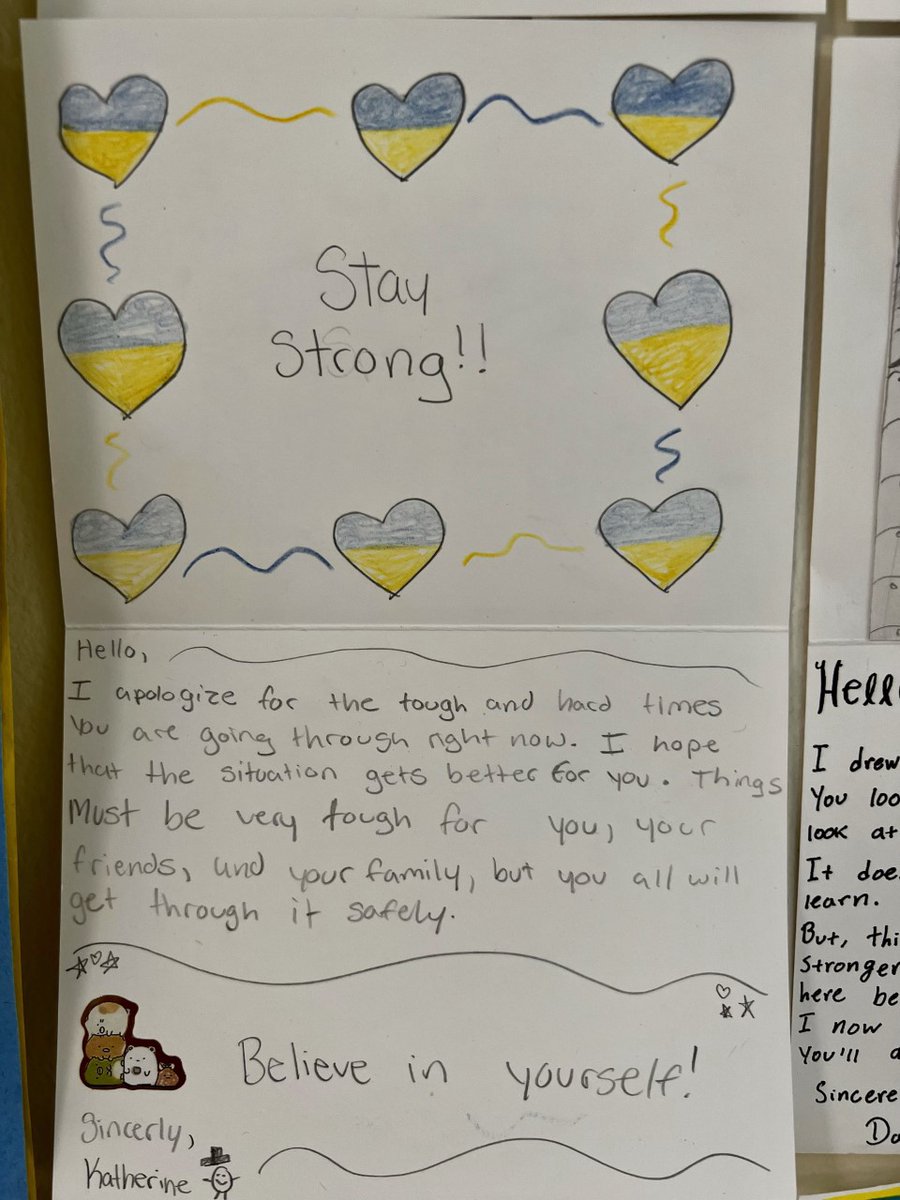 Stay
Strong!!
Hello,
I apologize for the tough and hard times
you are going through right now. I hope
that the situation gets better for you. Things
Must be very tough for you, your
friends, and your family, but you all will
get through it safely.
Believe in yourself!
Sincerly,
Katherine
Hello
I drew
You loo
look at
It doe
learn.
But, thi
Stronger
here be
I now
You'll a
Sincere
Da